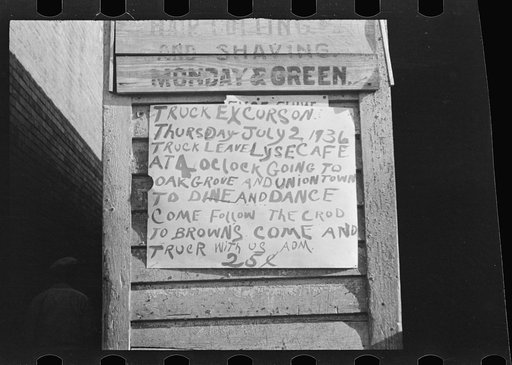 HAIR CUTTING
AND SHAVING
MONDAY & GREEN.
TRUCK EXCURSON
THURSDAY JULY 2, 1936
TRUCK LEAVE LYSE CAFE
AT 4 OCLOCK GOING TO
OAK GROVE AND UNION TOWN
TO DINE AND DANCE
COME FOLLOW THE CROD
TO BROWNS COME AND
TRUCR WITH US ADM.
25¢